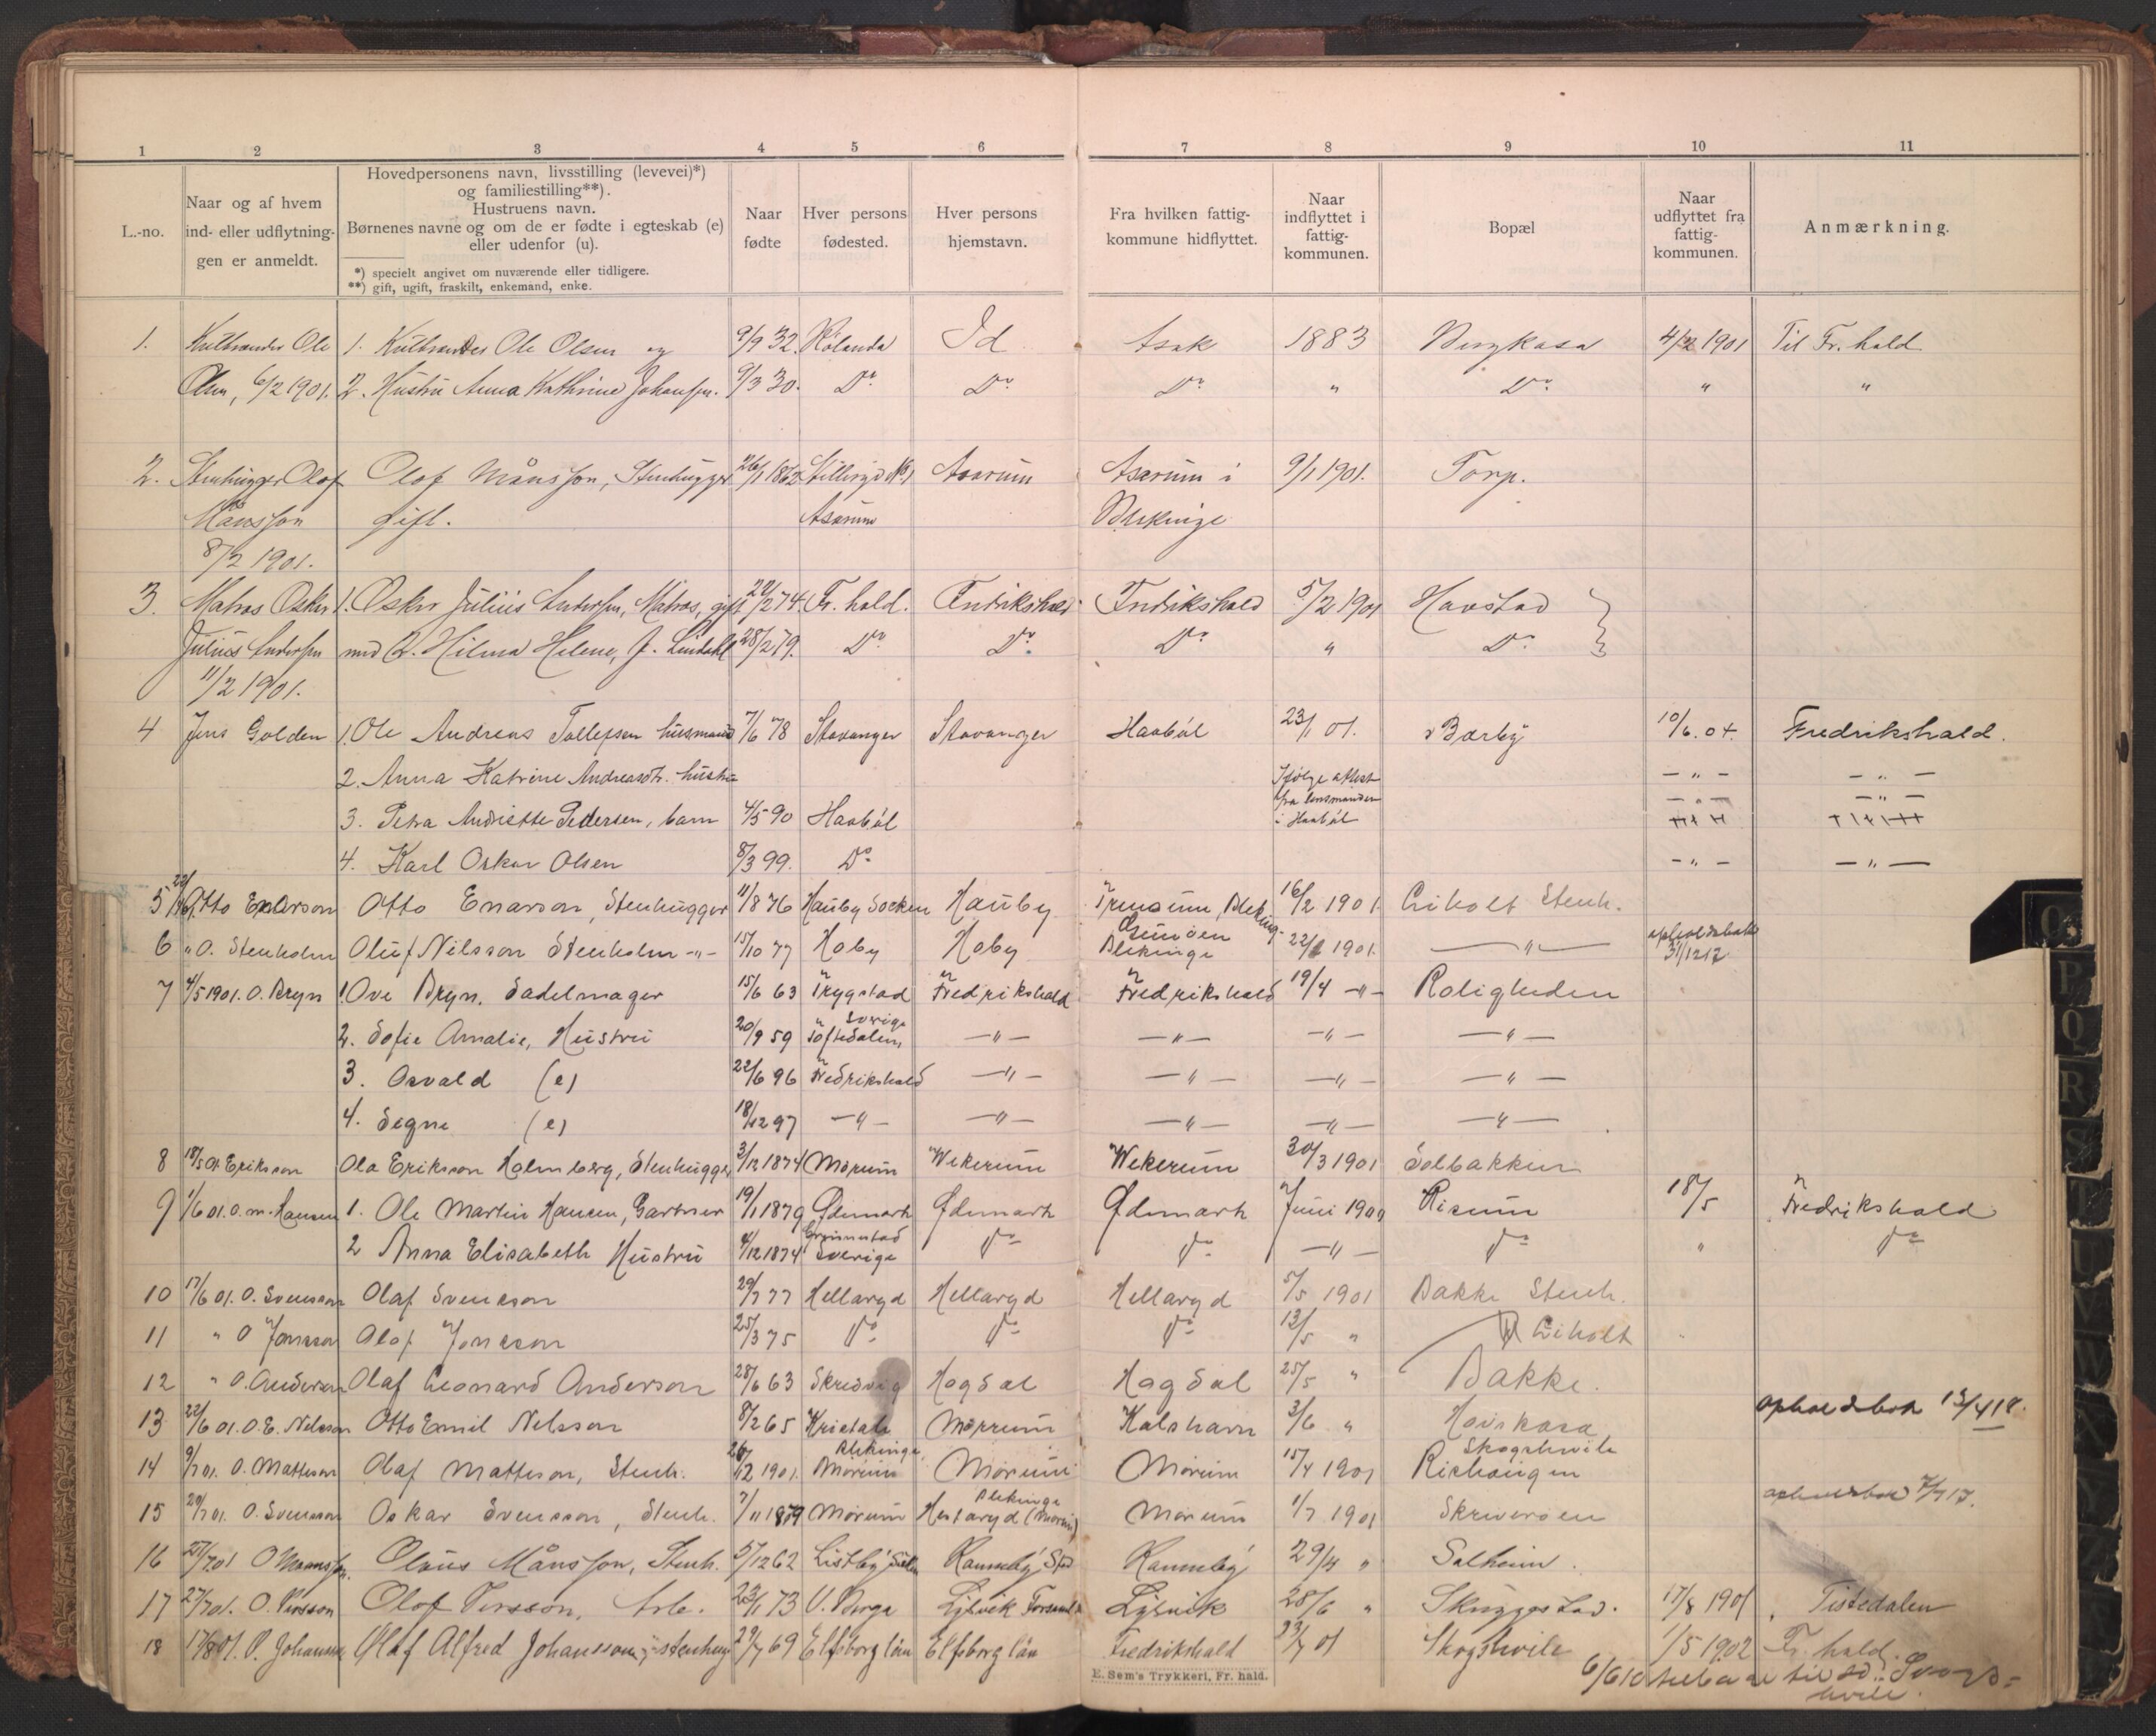 1 2 3 4 5 6 7 8 9 10 11
L.-no.
Naar og af hvem
ind- eller udflytning-
gen er anmeldt.
Hovedpersonens navn, livsstilling (levevei)*)
og familiestilling**).
Hustruens navn.
Børnenes navne og om de er fødte i egteskab (e)
eller udenfor (u).
*) specielt angivet om nuværende eller tidligere.
**) gift, ugift, fraskilt, enkemand, enke.
Naar
fødte
Hver persons
fødested.
Hver persons
hjemstavn.
Fra hvilken fattig-
kommune hidflyttet.
Naar
indflyttet i
fattig-
kommunen.
Bopæl
Naar
udflyttet fra
fattig-
kommunen.
Anmærkning.
1. Kulbrænder Ole 1. Kulbrænder Ole Olsen og 9/9 32. Rölanda Id Asak 1883 Bergkasa 4/2 1901 Til Fr.hald
Olsen, 6/2 1901. 2. Hustru Anna Kathrine Johansen. 9/3 30. Do Do Do " Do " "
2. Stenhugger Olof Olof Månsson, Stenhugger 26/1 1862 Asarum Asarum i 9/1 1901. Torp.
Månsson gift. Asarum Blekinge
8/2 1901.
3. Matros Oskar 1. Oskar Julius Andersen, Matros, gift 20/2 74. Fr.hald. Fredrikshald Fredrikshald 5/2 1901 Havstad
Julius Andersen med 2. Hilma Helene, f. Lindahl 28/2 79. Do Do Do " Do
11/2 1901.
4 Jens Golden 1. Ole Andreas Tollefsen husmand 7/6 78 Stavanger Stavanger Haabøl 23/1 01. Bærby 10/6.04. Fredrikshald.
2. Anna Katrine Andreasdtr. hustru Ifølge attest — " — — " —
fra lensmanden — " — — " —
3. Petra Andriette Pedersen, barn 4/5 90 Haabøl i Haabøl
4. Karl Oskar Olsen 8/3 99. Do — " — — " —
5 Otto Enarson Otto Enarson, Stenhugger 11/8 76 Hauby Socken Hauby Trensum, Bleking. 16/2 1901 Liholt Stenh.
6 " O. Stenholm Oluf Nilsson Stenholm -"- 15/10 77 Hoby Hoby Blekinge 22/ 1901. — " — opholdsbok 31/12 17
7 4/5 1901. O. Bryn 1. Ove Bryn, Sadelmager 15/6 63 Trygstad Fredrikshald Fredrikshald 19/4 -"- Roligheden
2. Sofie Amalie, Hustru 20/9 59 Sverige Töftedalen — " — — " — — " — — " —
3. Osvald (e) 22/6 96 Fredrikshald — " — — " — — " — — " —
4. Segne (e) 18/12 97 — " — — " — — " — — " — — " —
8 18/5 01 Eriksson Ola Erikson Holmberg, Stenhugger 3/12 1874 Mörum Wekerum Wekerum 30/3 1901 Solbakken
9 1/6 01. O. M. Hansen 1. Ole Martin Hansen, Gartner 19/1 1879 Ødemark Ødemark Ødemark Juni 1900 Risum 18/5 Fredrikshald
2 Anna Elisabeth Hustru 4/12 1874 Sverige Do Do — " — Do " Do
10 17/6 01. O. Svensson Olaf Svensson 29/7 77 Hellaryd Hellaryd Hellaryd 5/5 1901 Bakke Stenh.
11 " O Jonsson Olof Jonsson 25/3 75 Do Do Do 13/5 " Liholt
12 " O. Anderson Olaf Leonard Anderson 28/6 63 Skredvig Hogdal Hogdal 25/5 " Bakke.
13 22/6 01. O. E. Nelsson Otto Emil Nelsson 8/2 65 Kristals Mörrum Kalshavn 3/6 " Hovskasa opholdsbok 15/4 18.
14 9/7 01. O. Matteson Olaf Matteson, Stenh. 26/12 1901. Blekinge Mörum Mörum Mörum 15/4 1901 Skogshvile Rishaugen
15 20/7 01. O. Svensson Oskar Svensson, Stenh. 7/11 1879 Mörum Blekinge Hestaryd (Mörum) Mörum 1/7 1901 Skriverøen opholdsbok 7/7 17.
16 25/7 01 O Maansson Olaus Månsson, Stenh. 5/12 62 Listby Ronneby Stad Ronneby 29/4 " Solheim.
17 27/7 01. O. Persson Olof Persson, Arb. 23/11 73 V. Berga Lysvik Lysvik 28/6 " Skuggestad. 17/8 1901 Tistedalen
18 17/8 01. O. Johansson Olaf Alfred Johansson, stenhug 29/7 69 Elfsborg län Elfsborg län Fredrikshald 23/7 01 Skogshvile 1/5 1902 Fr.hald.
6/6 10 tilbage til
hvile.
E. Sem's Trykkeri, Fr. hald.
O
P
Q
R
S
T
U
V
W
X
Y
Z